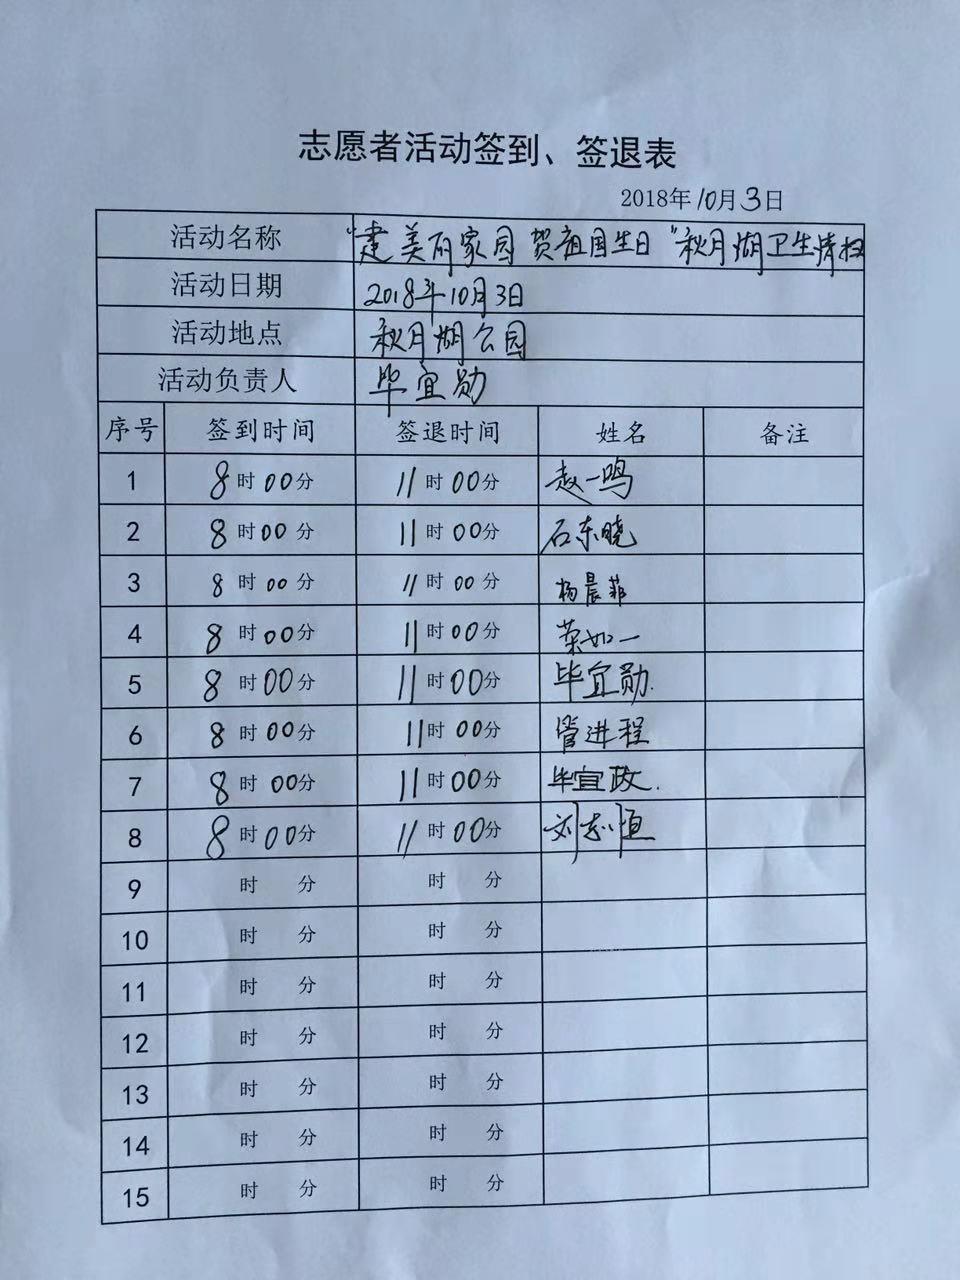 志愿者活动签到、签退表
2018年10月3日
活动名称 "建美丽家园 贺祖国生日"秋月湖卫生清扫
活动日期 2018年10月3日
活动地点 秋月湖公园
活动负责人 毕宜勋
序号 签到时间 签退时间 姓名 备注
1 8时00分 11时00分 赵一鸣
2 8时00分 11时00分 石东晓
3 8时00分 11时00分 杨晨菲
4 8时00分 11时00分 荣如一
5 8时00分 11时00分 毕宜勋.
6 8时00分 11时00分 管进程
7 8时00分 11时00分 毕宜政.
8 8时00分 11时00分 刘志恒
9 时 分 时 分
10 时 分 时 分
11 时 分 时 分
12 时 分 时 分
13 时 分 时 分
14 时 分 时 分
15 时 分 时 分